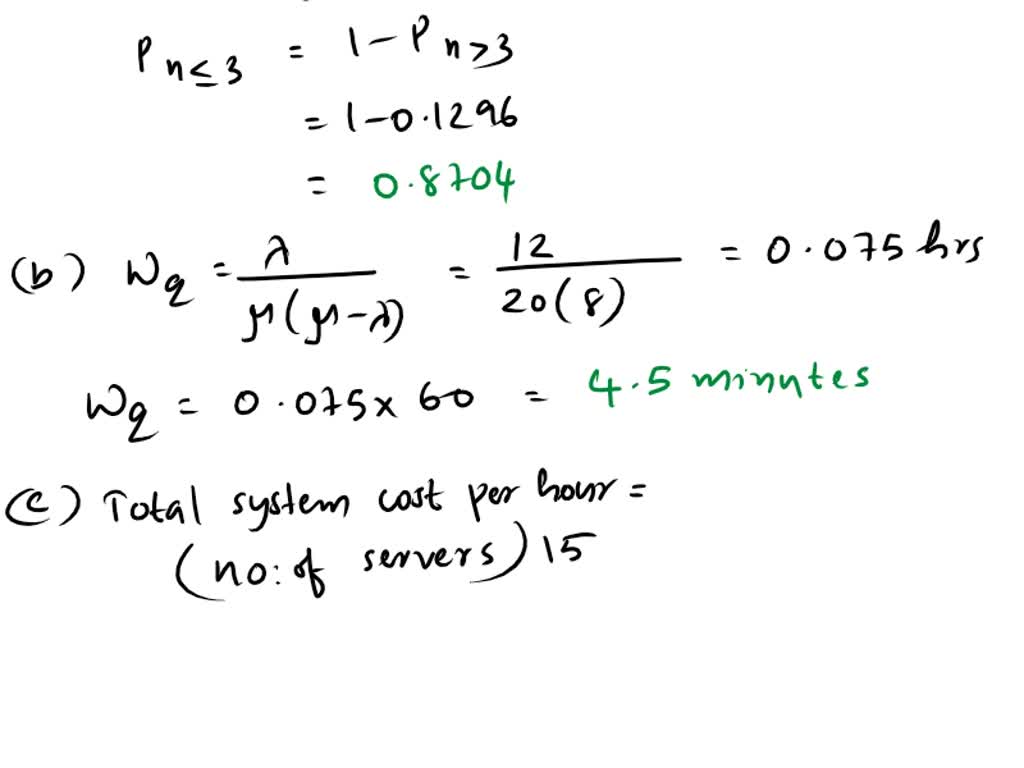 P n≤3 = 1-P n>3
= 1-0.1296
= 0.8704
(b) Wq = λ / μ(μ-λ) = 12 / 20(8) = 0.075 hrs
Wq = 0.075 x 60 = 4.5 minutes
(c) Total system cost per hour =
(no: of servers) 15